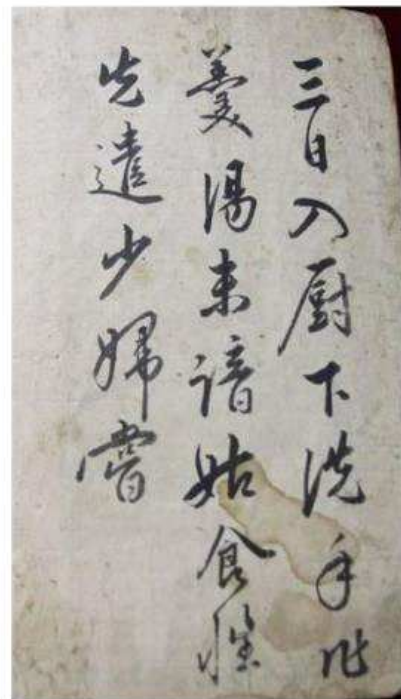 三日入厨下洗手作
羹湯未諳姑食性
先遣少婦嘗